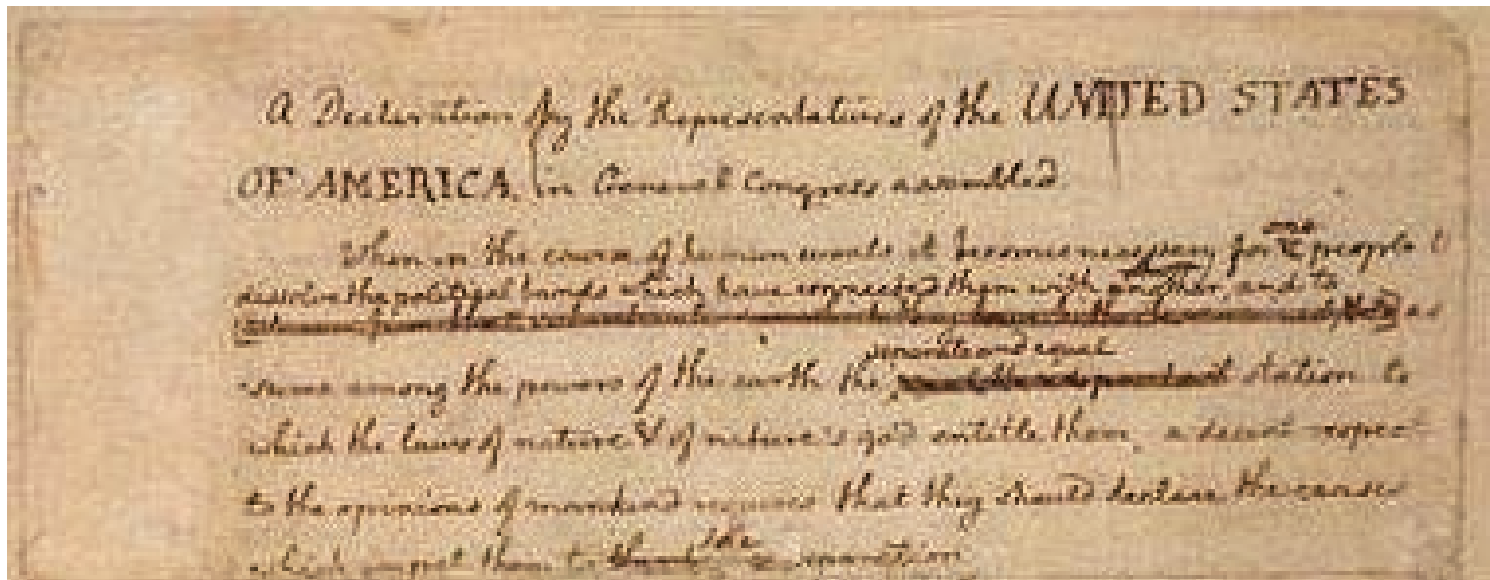 A Declaration by the Representatives of the UNITED STATES
OF AMERICA, in General Congress assembled.
When in the course of human events it becomes necessary for one people to
dissolve the political bands which have connected them with another, and to
as
separate and equal
-sume among the powers of the earth the station to
which the laws of nature & of nature's god entitle them, a decent respect
to the opinions of mankind requires that they should declare the causes
which impel them to the separation